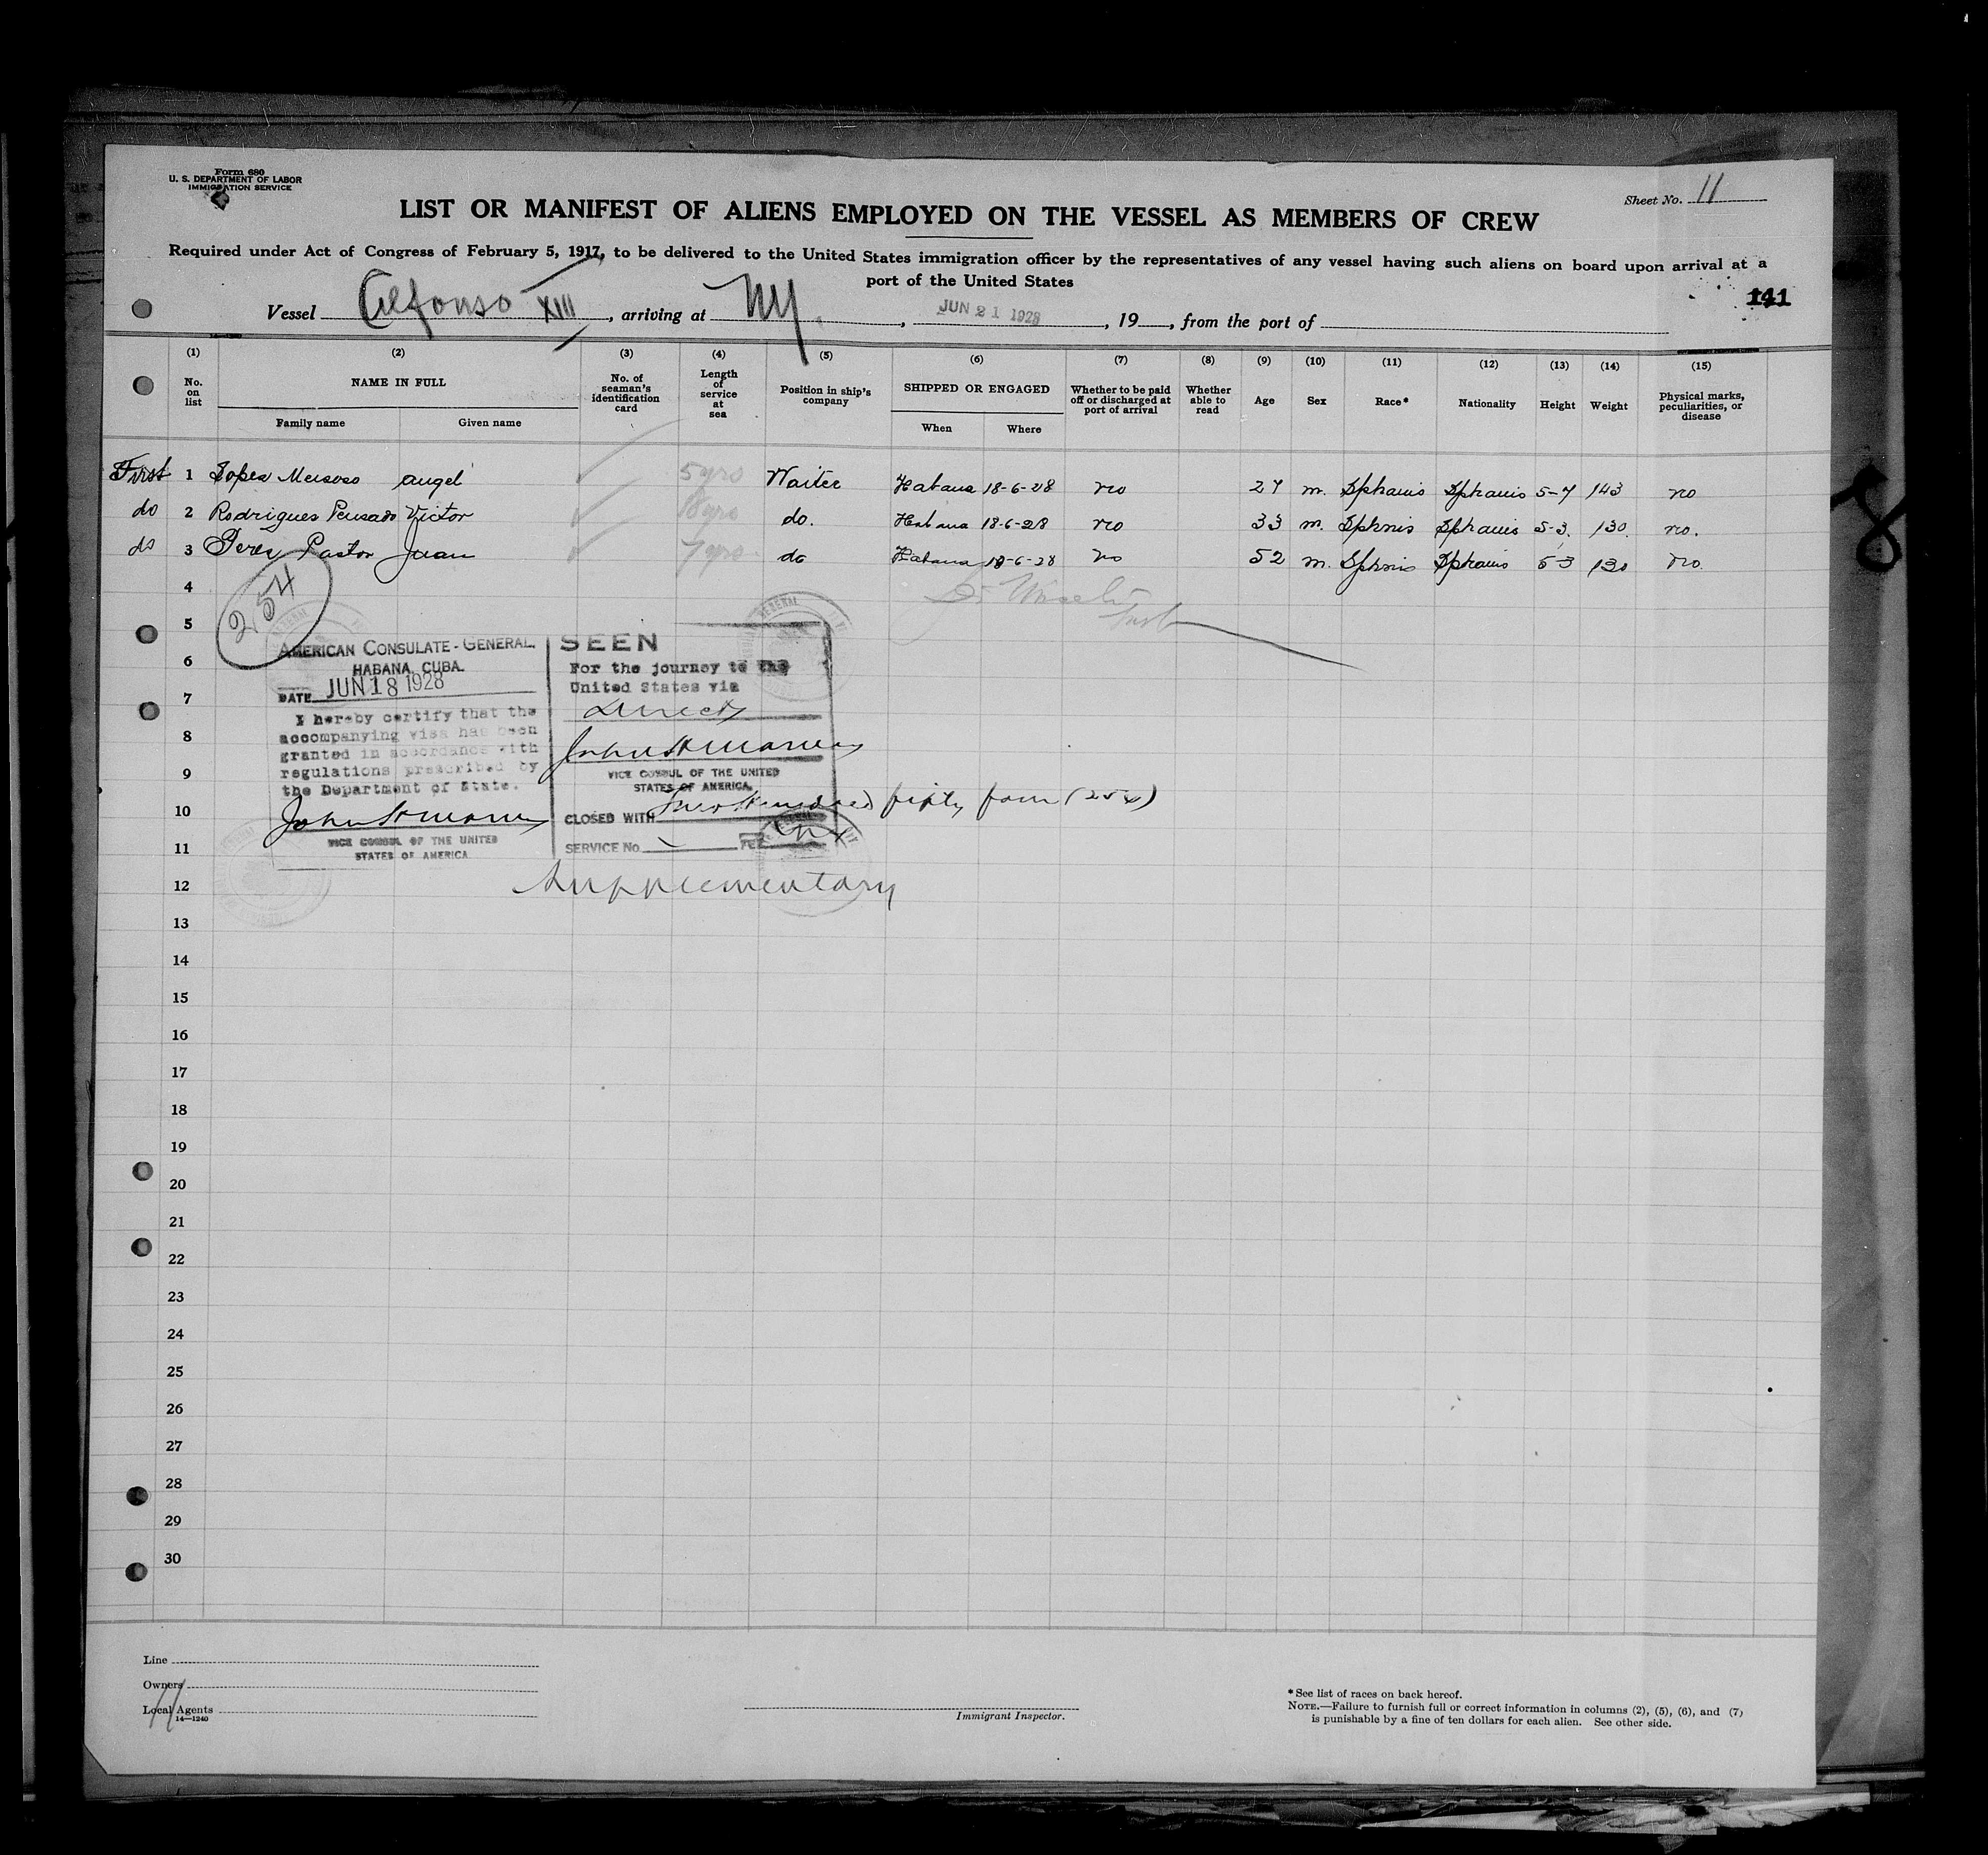 Form 680
U. S. DEPARTMENT OF LABOR
IMMIGRATION SERVICE
Sheet No. 11
LIST OR MANIFEST OF ALIENS EMPLOYED ON THE VESSEL AS MEMBERS OF CREW
Required under Act of Congress of February 5, 1917, to be delivered to the United States immigration officer by the representatives of any vessel having such aliens on board upon arrival at a
port of the United States
141
Vessel Alfonso XIII, arriving at NY., JUN 21 1928, 19, from the port of
(1) (2) (3) (4) (5) (6) (7) (8) (9) (10) (11) (12) (13) (14) (15)
No. on list
NAME IN FULL
Family name Given name
No. of seaman's identification card
Length of service at sea
Position in ship's company
SHIPPED OR ENGAGED
When Where
Whether to be paid off or discharged at port of arrival
Whether able to read
Age
Sex
Race*
Nationality
Height
Weight
Physical marks, peculiarities, or disease
First 1 Lopes angel 5 yrs Waiter Habana 18-6-28 no 27 m. Sphanis Sphanis 5-7 143 no
do 2 Rodrigues Pensado Victor 18 yrs do. Habana 18-6-28 no 33 m. Sphnis Sphanis 5-3. 130. no.
do 3 Peres Pastor Juan 7 yrs do Habana 18-6-28 no 52 m. Sphnis Sphanis 5-3 130 no.
4
254
5
6
7
8
9
10
11
12
13
14
15
16
17
18
19
20
21
22
23
24
25
26
27
28
29
30
AMERICAN CONSULATE-GENERAL.
HABANA, CUBA.
DATE JUN 18 1928
I hereby certify that the
accompanying visa has been
granted in accordance with
regulations prescribed by
the Department of State.
VICE CONSUL OF THE UNITED
STATES OF AMERICA
SEEN
For the journey to the
United States via
direct
VICE CONSUL OF THE UNITED
STATES OF AMERICA.
CLOSED WITH Two Hundred fifty four (254)
SERVICE No. FEE
Supplementary
8
Line
Owners
Local Agents
14—1240
11
Immigrant Inspector.
*See list of races on back hereof.
NOTE.—Failure to furnish full or correct information in columns (2), (5), (6), and (7)
is punishable by a fine of ten dollars for each alien. See other side.